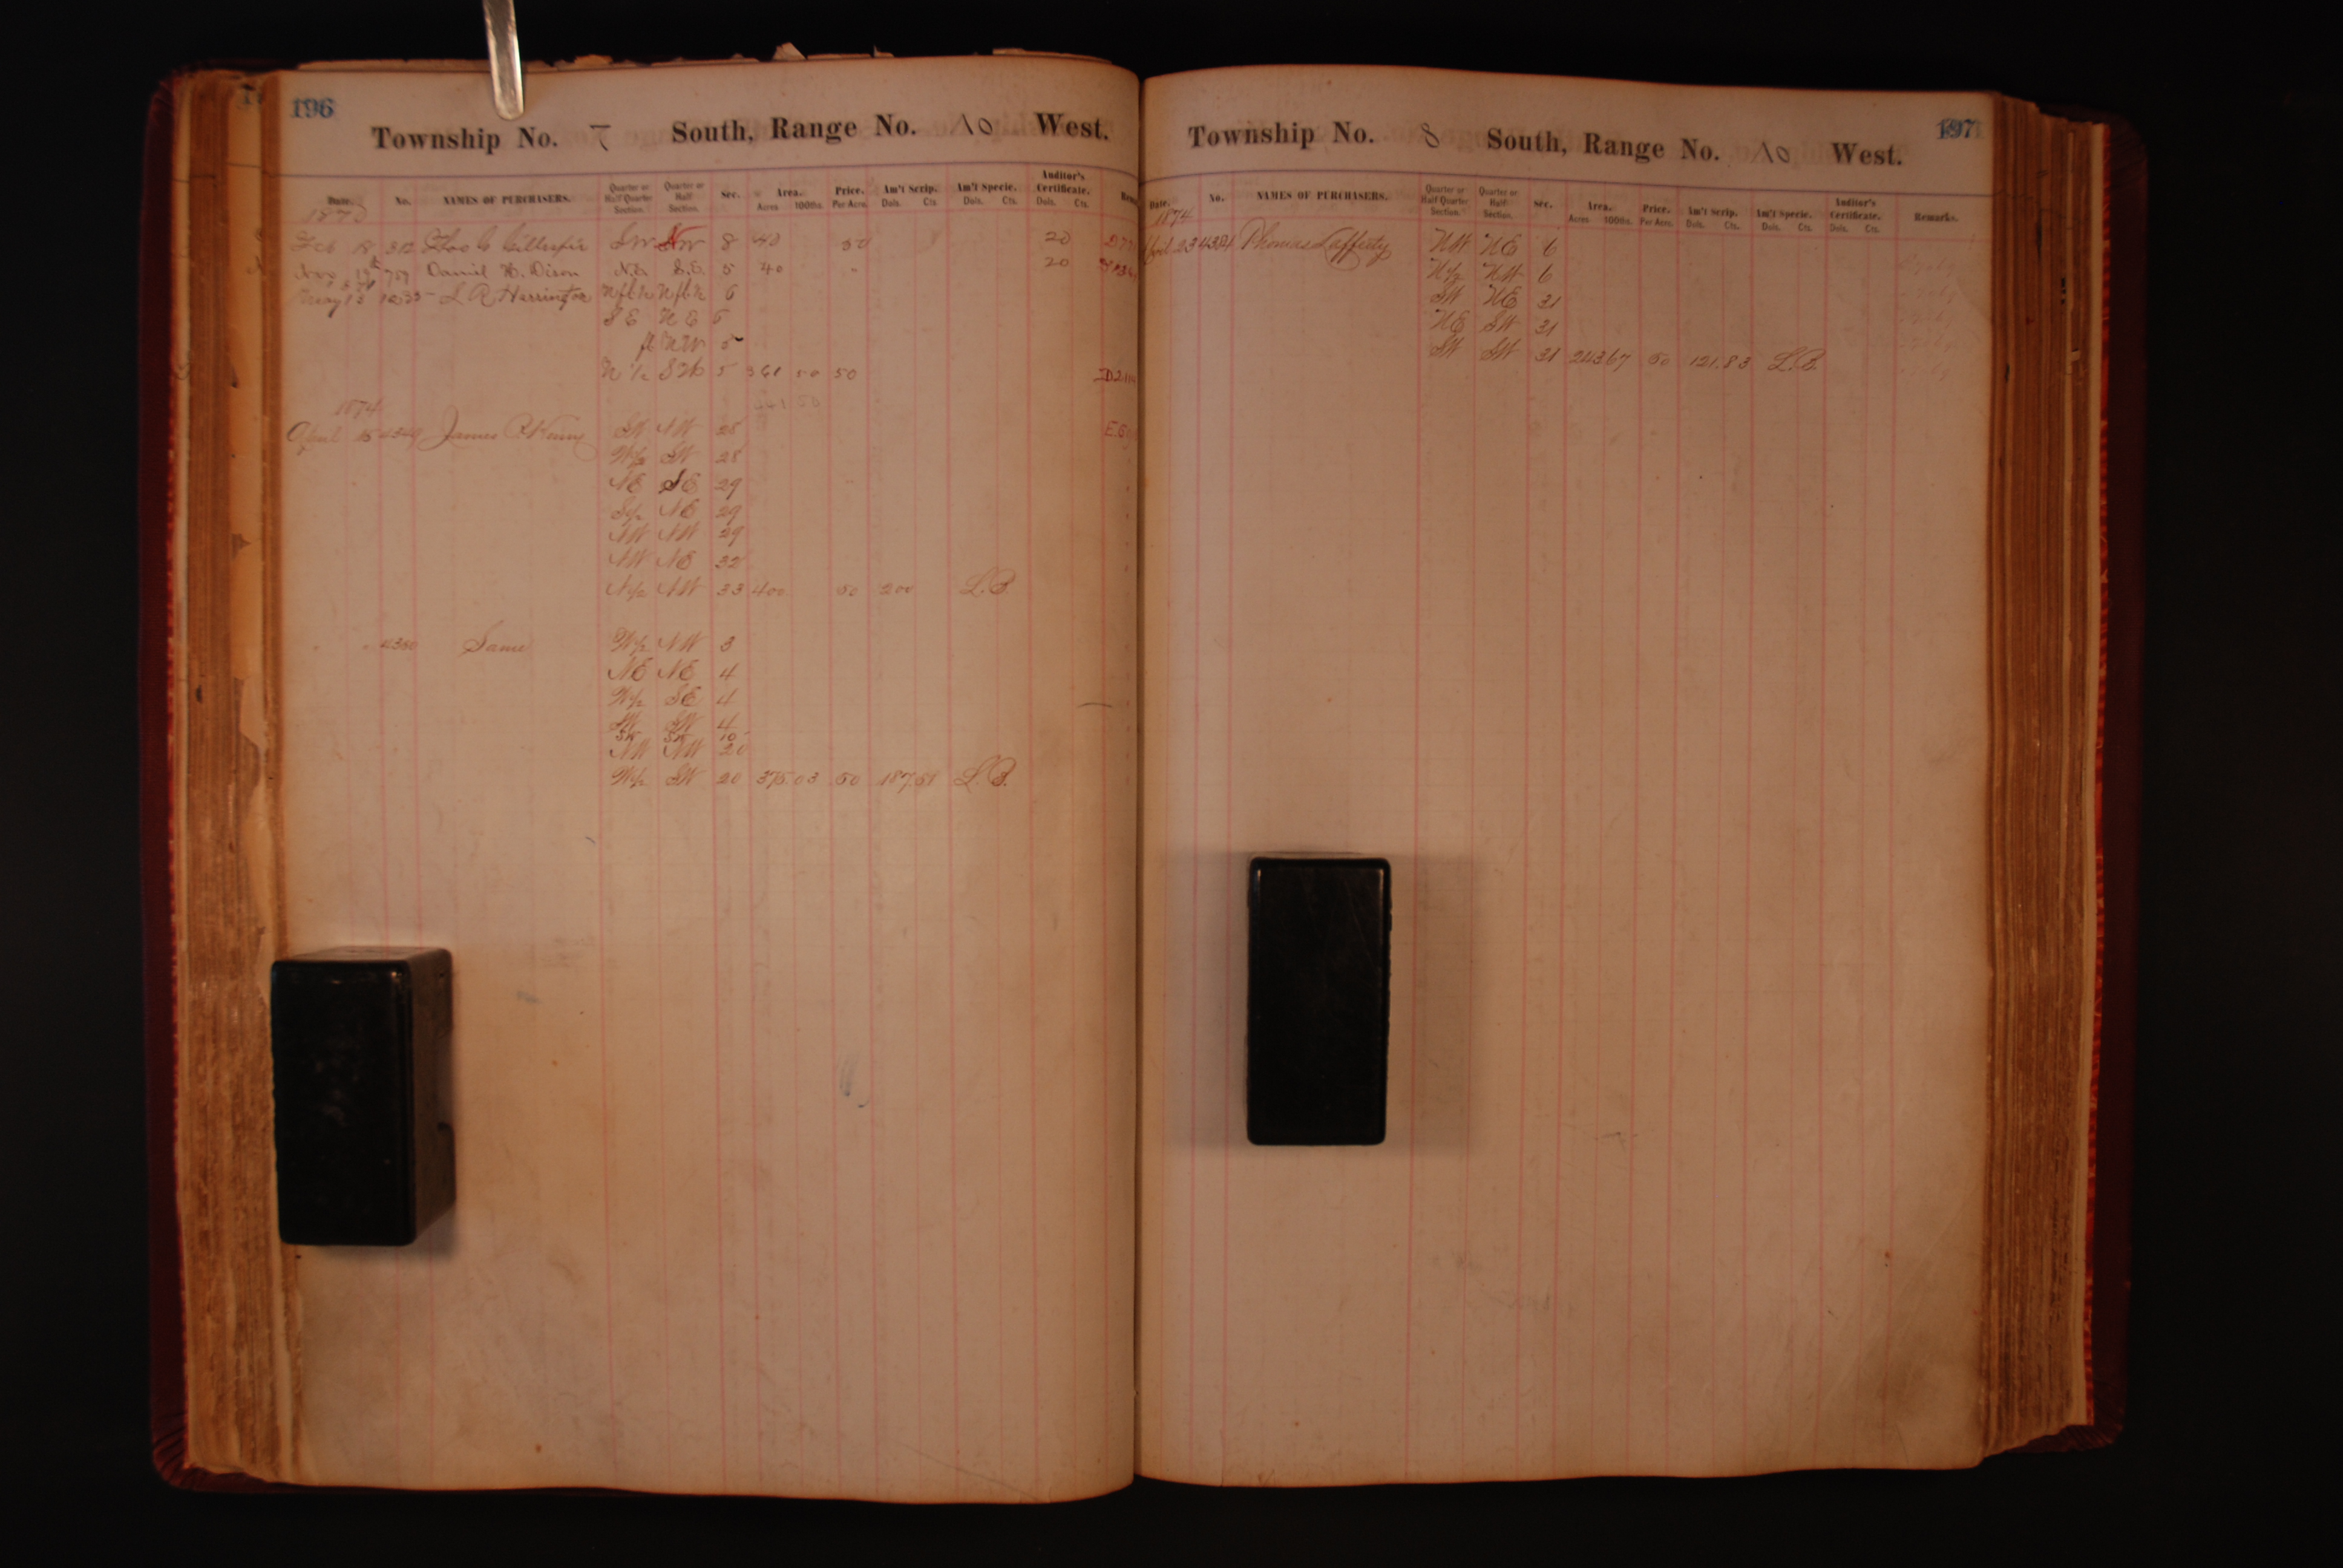 196
Township No. 7 South, Range No. 10 West.
Date. No. NAMES OF PURCHASERS. Quarter or Half Quarter Section. Quarter or Half Section. Sec. Area. Acres 100ths. Price. Per Acre. Am't Scrip. Dols. Cts. Am't Specie. Dols. Cts. Auditor's Certificate. Dols. Cts.
1870
Feb 18 312 Gillespie SW NW 8 40 50 20
Nov 19 759 Daniel H. Dison N.E. S.E. 5 40 " 20
May 13 L R Harrington 6
S E N E 6
fl NW 5
N 1/2 5 361 50 50
1874
April 15 4349 James SW NW 28
W/2 SW 28
NE SE 29
S/2 NE 29
NW NW 29
NW NE 32
N/2 NW 33 400 50 200 L.B.
" " 4350 Same W/2 NW 3
NE NE 4
W/2 SE 4
SW SW 4
SW SW 10
NW NW 20
W/2 SW 20 375.03 50 187.51 L.B.
197
Township No. 8 South, Range No. 10 West.
Date. No. NAMES OF PURCHASERS. Quarter or Half Quarter Section. Quarter or Half Section. Sec. Area. Acres 100ths. Price. Per Acre. Am't Scrip. Dols. Cts. Am't Specie. Dols. Cts. Auditor's Certificate. Dols. Cts. Remarks.
1874
April 23 4384 Thomas Lafferty NW NE 6
N/2 NW 6
SW NE 31
NE SW 31
SW SW 31 243 67 50 121.83 L.B.